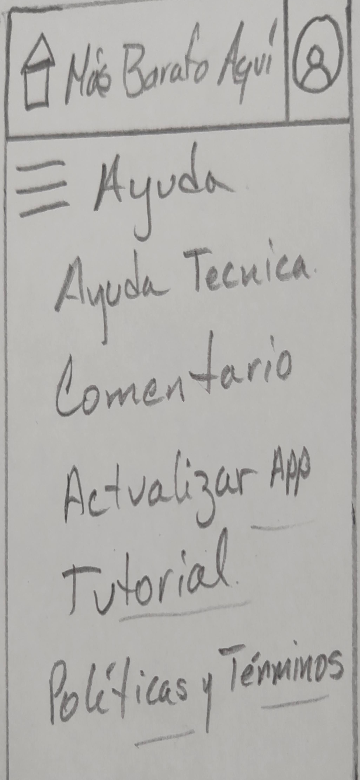 Más Barato Aquí
Ayuda
Ayuda Tecnica.
Comentario
Actualizar App
Tutorial.
Políticas y Términos